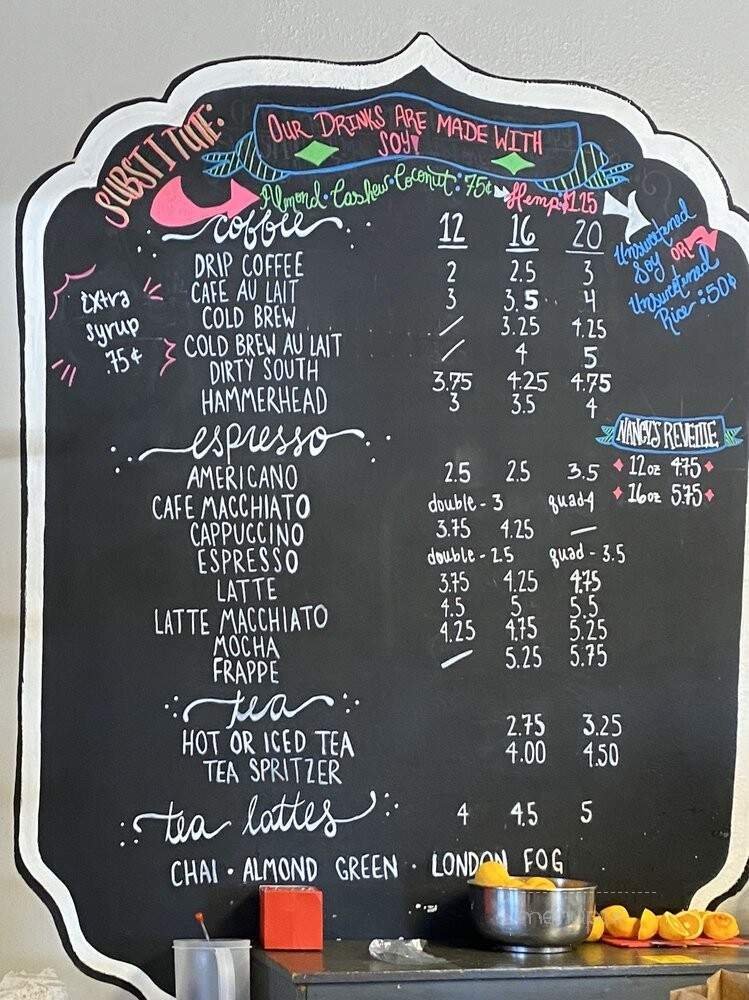 SUBSTITUTE:
OUR DRINKS ARE MADE WITH
SOY
Almond · Cashew · Coconut : 75¢ Hemp $1.25
Unsweetened
Soy OR
Unsweetened
Rice : 50¢
Extra
syrup
.75¢
coffee 12 16 20
DRIP COFFEE 2 2.5 3
CAFE AU LAIT 3 3.5 4
COLD BREW / 3.25 4.25
COLD BREW AU LAIT / 4 5
DIRTY SOUTH 3.75 4.25 4.75
HAMMERHEAD 3 3.5 4
NANCY'S REVEILLE
12oz 4.75
16oz 5.75
espresso
AMERICANO 2.5 2.5 3.5
CAFE MACCHIATO double - 3 quad-4
CAPPUCCINO 3.75 4.25 —
ESPRESSO double - 2.5 quad - 3.5
LATTE 3.75 4.25 4.75
LATTE MACCHIATO 4.5 5 5.5
MOCHA 4.25 4.75 5.25
FRAPPE / 5.25 5.75
tea
HOT OR ICED TEA 2.75 3.25
TEA SPRITZER 4.00 4.50
tea lattes 4 4.5 5
CHAI · ALMOND GREEN · LONDON FOG